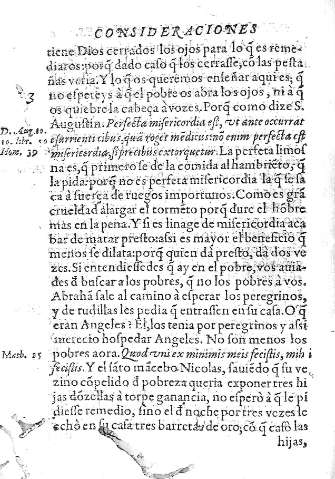 CONSIDERACIONES
tiene Dios cerrados los ojos para lo q̃ es reme-
diaros: porq̃ dado caso q̃ los cerrasse, cõ las pesta
ñas veria. Y lo q̃ os queremos enseñar aqui es; q̃
3
no espereys à q̃ el pobre os abra los ojo, ni à q̃
os quiebre la cabeça à vozes. Porq̃ como dize S.
Augustin. Perfecta misericordia est, vt ante occurrat
D. Aug. 10.
10. lib. 50
Hom. 39
esurientibus, quã roget mendicus: no enim perfecta est
misericordia, si precibus extorquetur. La perfeta limos
na es, q̃ primero se de la comida al hambriẽto, q̃
la pida: porq̃ no es perfeta misericordia la q̃ se sa
ca à fuerça de ruegos importunos. Como es grã
crueldad alargar el tormẽto porq̃ dure el hõbre
mas en la pena. Y si es linage de misericordia aca
bar de matar presto: assi es mayor el beneficio q̃
menos se dilata: porq̃ quien dà presto, dà dos ve
zes. Si entendiessedes q̃ ay en el pobre, vos auia
des d̃ buscar a los pobres, q̃ no los pobres à vos.
Abrahã sale al camino à esperar los peregrinos,
y de rudillas les pedia q̃ entrassen en su casa. O q̃
eran Angeles! El, los tenia por peregrinos y assi
merecio hospedar Angeles. No son menos los
Math. 25
pobres aora. Quod vni ex minimis meis fecistis, mihi
fecistis. Y el sãto mãcebo Nicolas, sauiẽdo q̃ su ve
zino cõpelido d̃ pobreza queria exponer tres hi
jas dõzellas à torpe ganancia, no esperò à q̃ le pi
diesse remedio, sino el d̃ noche por tres vezes le
echò en su casa tres barretas de oro; cõ q̃ casò las
hijas,